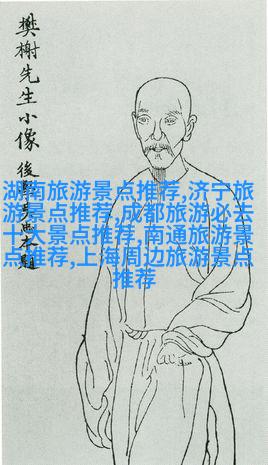 樊榭先生小像
後學
湖南旅游景点推荐,济宁旅
游景点推荐,成都旅游必去
十大景点推荐,南通旅游景
点推荐,上海周边旅游景点
推荐